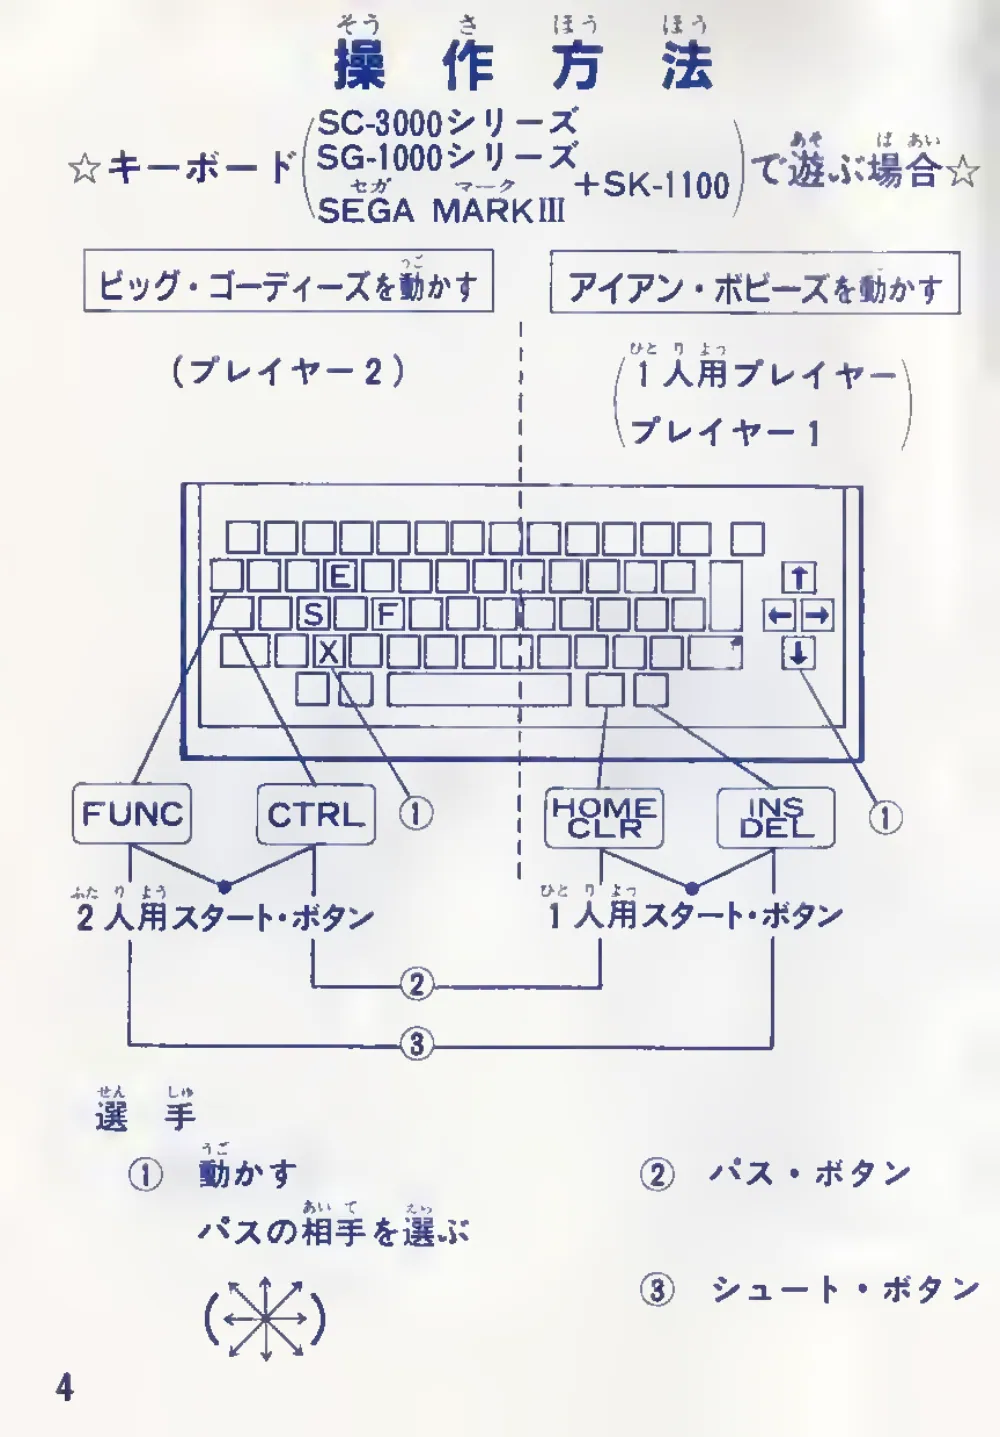 そう さ ほう ほう
操作方法
☆キーボード
SC-3000シリーズ
SG-1000シリーズ
セガ マーク
SEGA MARKⅢ
+SK-1100
あそ ば あい
で遊ぶ場合☆
うご
ビッグ・ゴーディーズを動かす
アイアン・ボビーズを動かす
(プレイヤー2)
ひと り よう
1人用プレイヤー
プレイヤー1
E
S F
X
↑
← →
↓
FUNC
CTRL
①
HOME
CLR
INS
DEL
①
ふた り よう
2人用スタート・ボタン
ひと り よう
1人用スタート・ボタン
②
③
せん しゅ
選手
うご
① 動かす
あい て えら
パスの相手を選ぶ
② パス・ボタン
③ シュート・ボタン
4